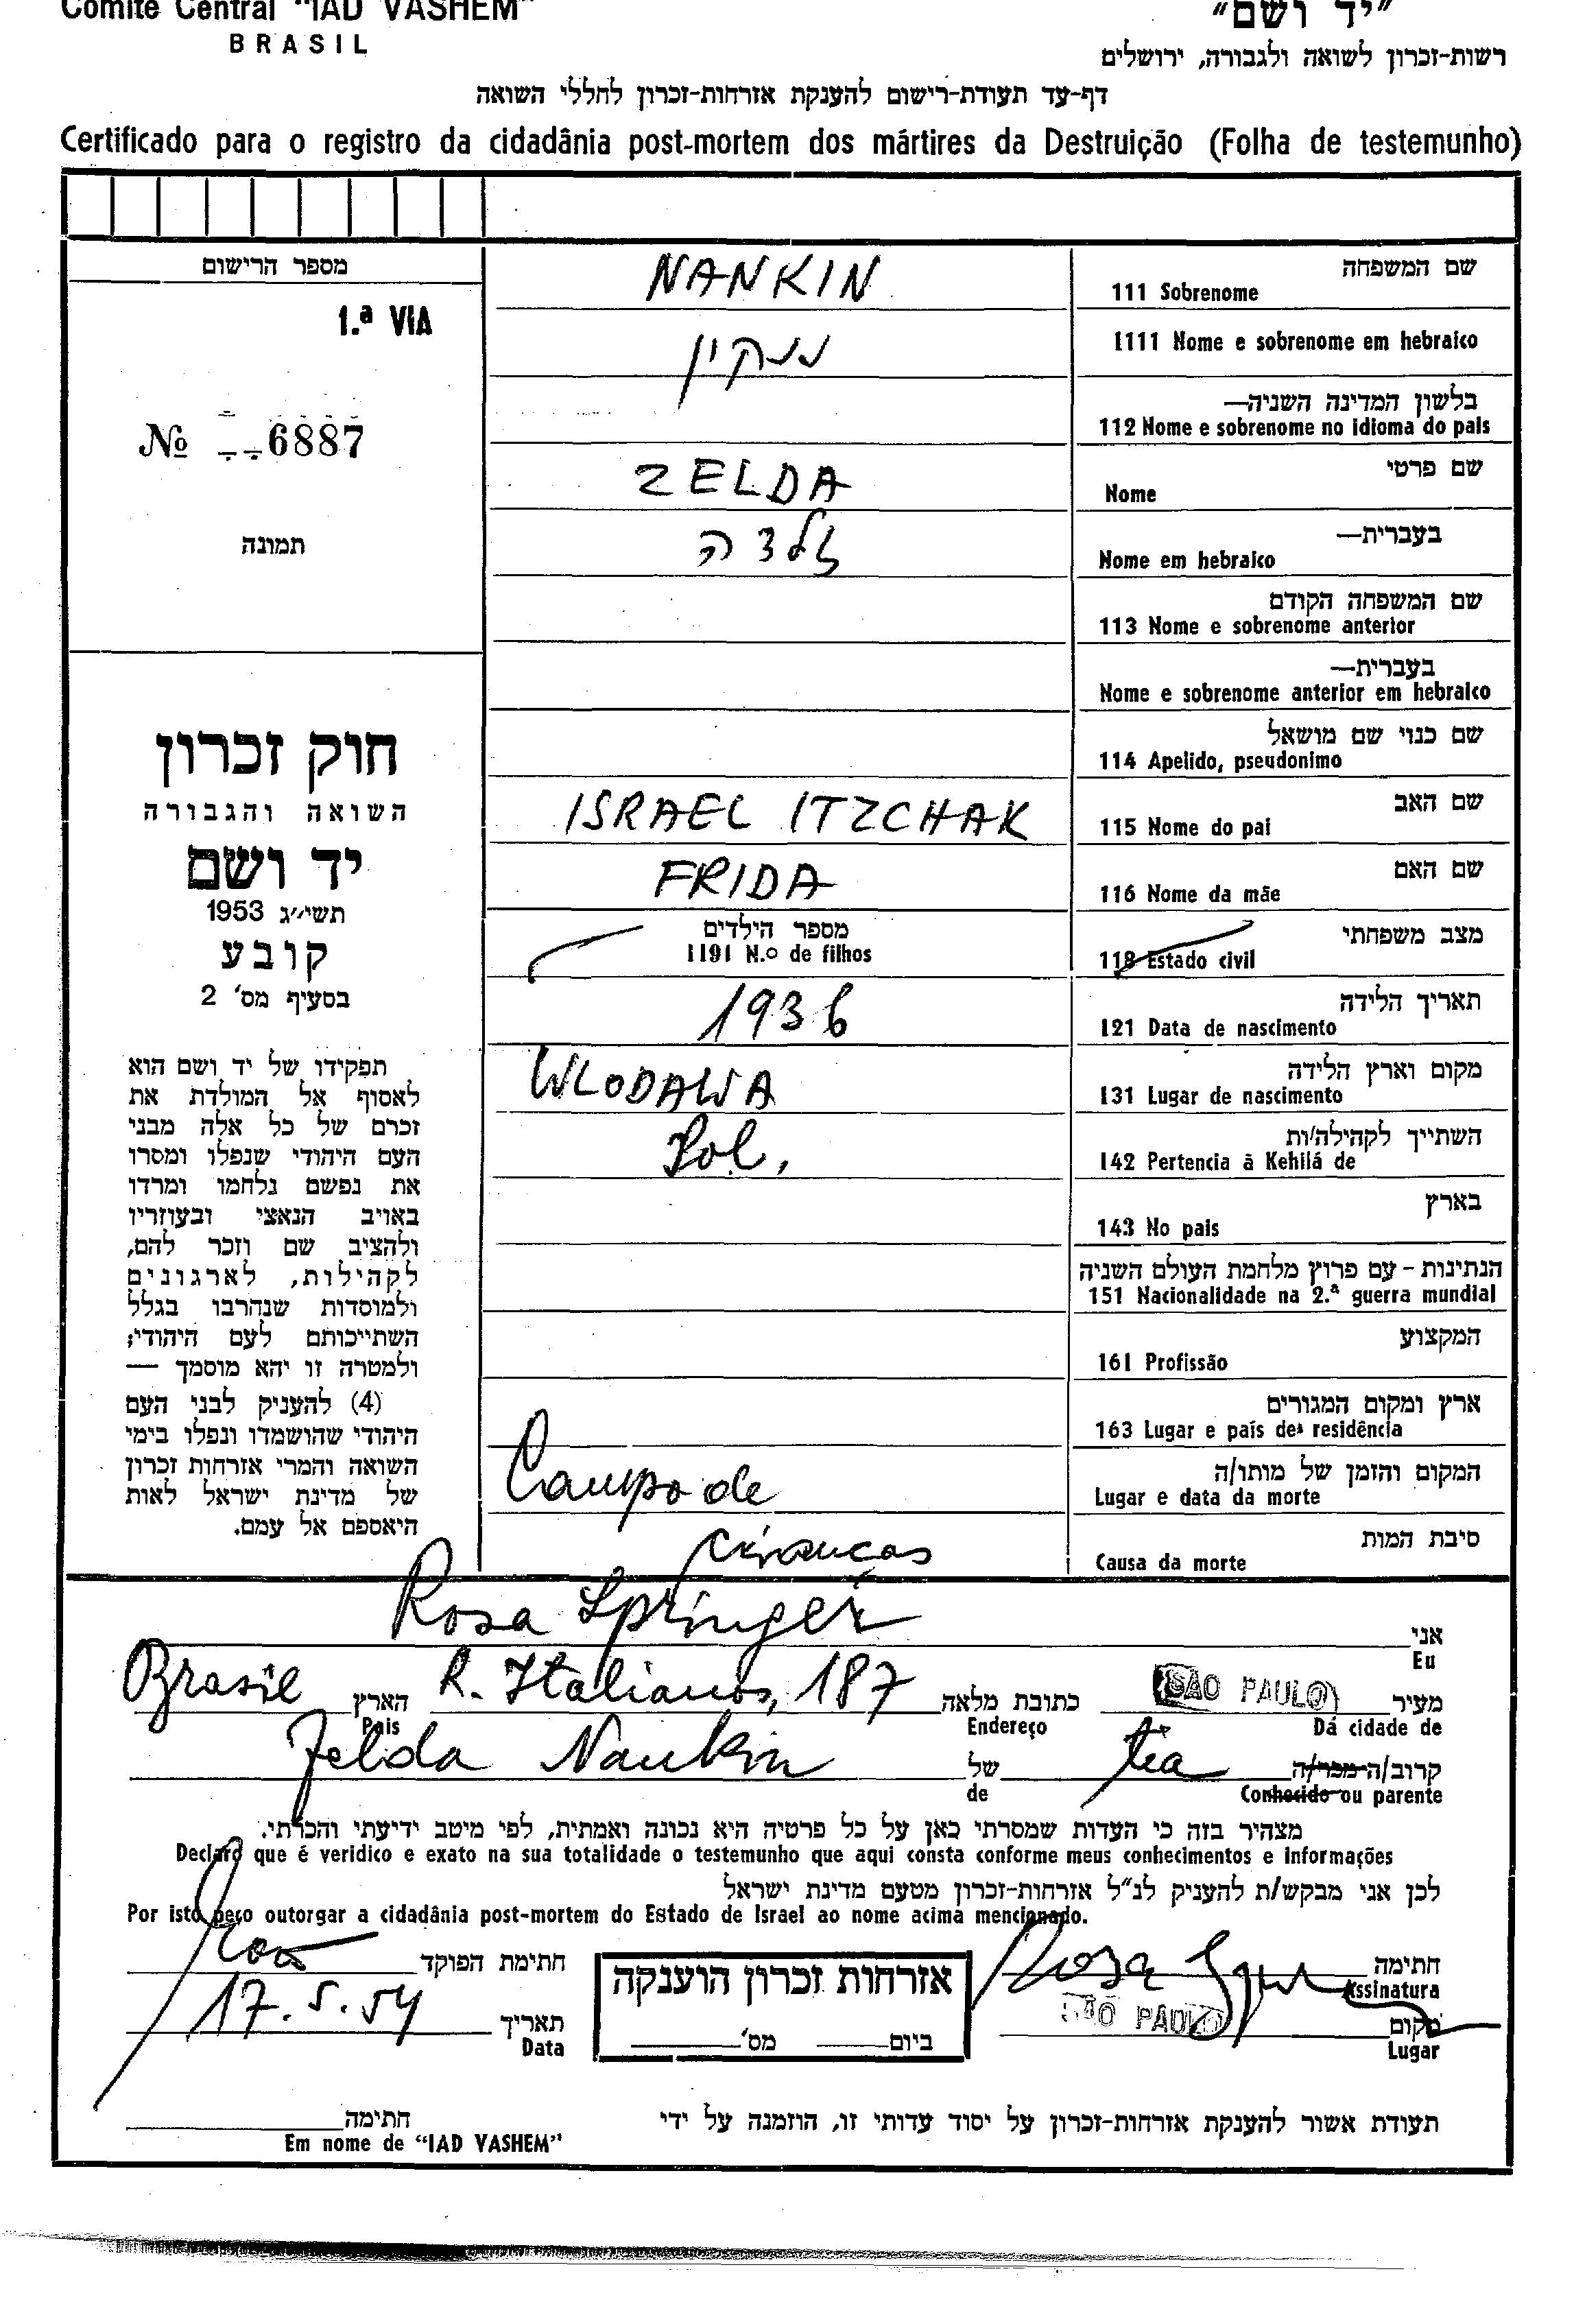 Comité Central "IAD VASHEM"
BRASIL
"יד ושם"
רשות-זכרון לשואה ולגבורה, ירושלים
דף-עד תעודת-רישום להענקת אזרחות-זכרון לחללי השואה
Certificado para o registro da cidadânia post-mortem dos mártires da Destruição (Folha de testemunho)
מספר הרישום
1.ª VIA
№ 6887
תמונה
חוק זכרון
השואה והגבורה
יד ושם
תשי"ג 1953
קובע
בסעיף מס' 2
תפקידו של יד ושם הוא
לאסוף אל המולדת את
זכרם של כל אלה מבני
העם היהודי שנפלו ומסרו
את נפשם נלחמו ומרדו
באויב הנאצי ובעוזריו
ולהציב שם וזכר להם,
לקהילות, לארגונים
ולמוסדות שנהרבו בגלל
השתייכותם לעם היהודי;
ולמטרה זו יהא מוסמך —
(4) להעניק לבני העם
היהודי שהושמדו ונפלו בימי
השואה והמרי אזרחות זכרון
של מדינת ישראל לאות
היאספם אל עמם.
שם המשפחה
111 Sobrenome
NANKIN
1111 Nome e sobrenome em hebraico
ננקין
בלשון המדינה השניה—
112 Nome e sobrenome no idioma do pais
שם פרטי
Nome
ZELDA
בעברית—
Nome em hebraico
זלדה
שם המשפחה הקודם
113 Nome e sobrenome anterior
בעברית—
Nome e sobrenome anterior em hebraico
שם כנוי שם מושאל
114 Apelido, pseudonimo
שם האב
115 Nome do pai
ISRAEL ITZCHAK
שם האם
116 Nome da mãe
FRIDA
מצב משפחתי
118 Estado civil
מספר הילדים
1191 N.º de filhos
תאריך הלידה
121 Data de nascimento
1936
מקום וארץ הלידה
131 Lugar de nascimento
WLODAWA
השתייך לקהילה/ות
142 Pertencia à Kehilá de
Pol.
בארץ
143 No pais
הנתינות - עם פרוץ מלחמת העולם השניה
151 Nacionalidade na 2.ª guerra mundial
המקצוע
161 Profissão
ארץ ומקום המגורים
163 Lugar e país de residência
המקום והזמן של מותו/ה
Lugar e data da morte
Campo de
crianças
סיבת המות
Causa da morte
אני
Eu
Rosa Springer
מעיר
Dá cidade de
SÃO PAULO
כתובת מלאה
Endereço
R. Italianos, 187
הארץ
Pais
Brasil
קרוב/ה מכר/ה
Conhecido ou parente
tia
של
de
Zelda Nankin
מצהיר בזה כי העדות שמסרתי כאן על כל פרטיה היא נכונה ואמתית, לפי מיטב ידיעתי והכרתי.
Declaro que é veridico e exato na sua totalidade o testemunho que aqui consta conforme meus conhecimentos e informações
לכן אני מבקש/ת להעניק לנ"ל אזרחות-זכרון מטעם מדינת ישראל
Por isto peço outorgar a cidadânia post-mortem do Estado de Israel ao nome acima mencionado.
חתימה
Assinatura
Rosa
מקום
Lugar
SÃO PAULO
אזרחות זכרון הוענקה
ביום מס'
חתימת הפוקד
תאריך
Data
17.5.54
תעודת אשור להענקת אזרחות-זכרון על יסוד עדותי זו, הוזמנה על ידי
חתימה
Em nome de "IAD VASHEM"